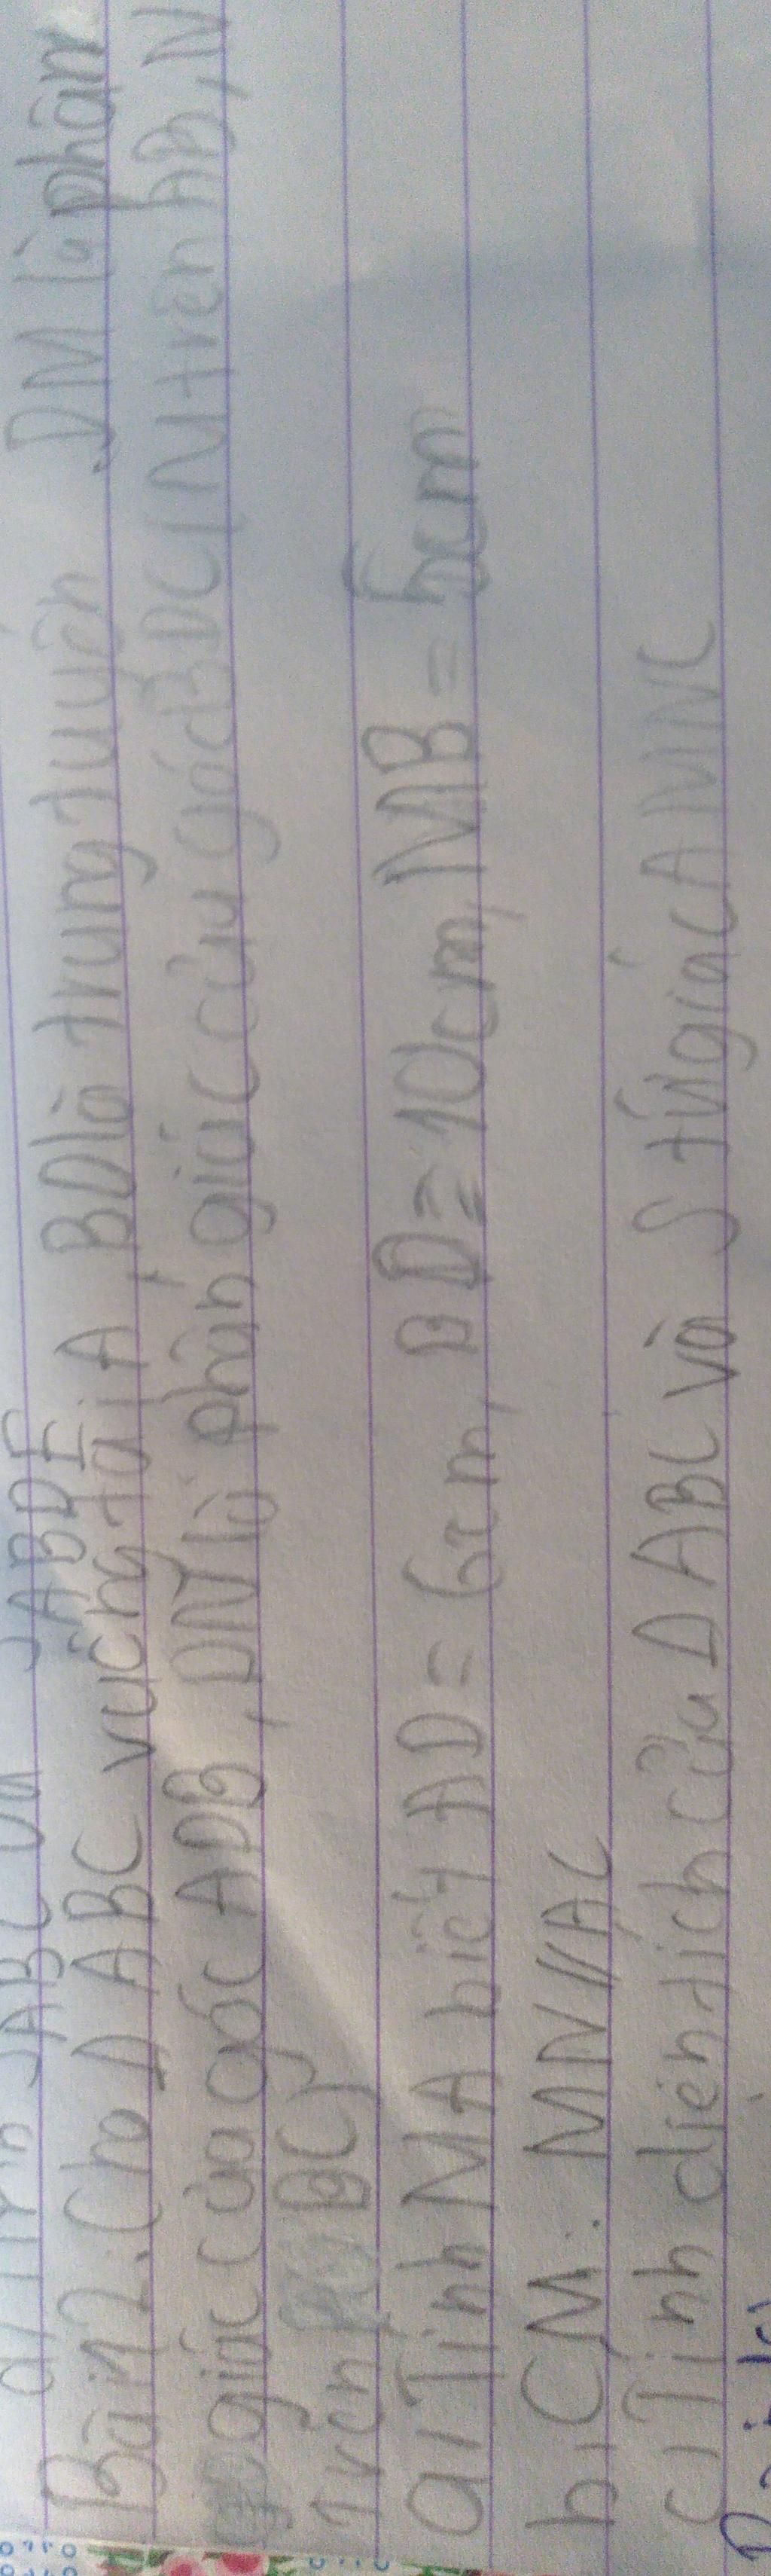 SABDE
Bài 2. Cho Δ ABC vuông tại A, BD là trung tuyến DM là phân
giác của góc ADB, DN là phân giác của góc BDC (M trên AB, N
trên BC)
a, Tính MA biết AD = 6cm, BD = 10cm, MB = 5cm
b, CM: MN // AC
c, Tính diện tích của Δ ABC và S tứ giác AMNC